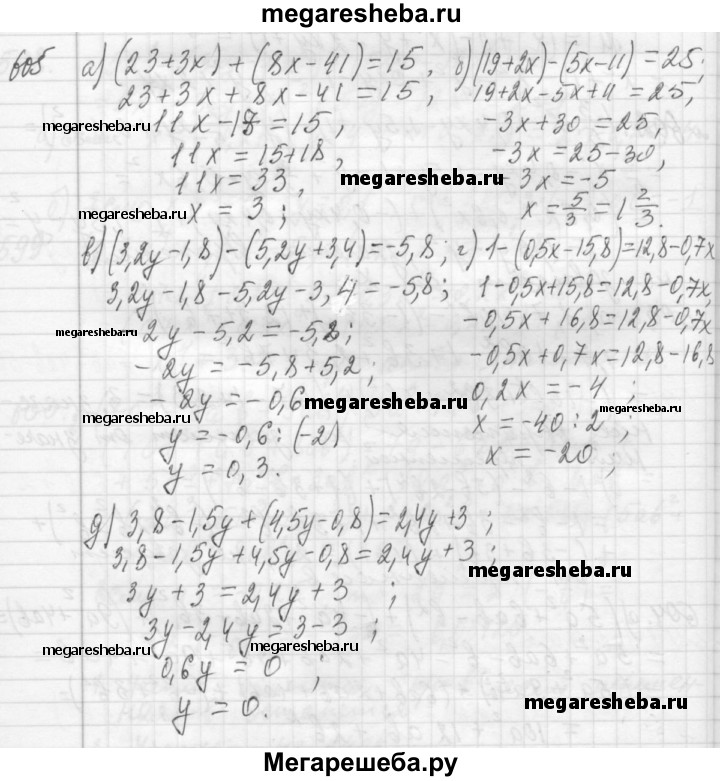 megaresheba.ru
605 а) (23+3x)+(8x-41)=15, б) (19+2x)-(5x-11)=25;
23+3x+8x-41=15, 19+2x-5x+11=25,
megaresheba.ru 11x-18=15, -3x+30=25,
11x=15+18, -3x=25-30,
11x=33, megaresheba.ru -3x=-5
megaresheba.ru x=3; x=5/3=1 2/3.
в) (3,2y-1,8)-(5,2y+3,4)=-5,8; г) 1-(0,5x-15,8)=12,8-0,7x
3,2y-1,8-5,2y-3,4=-5,8; 1-0,5x+15,8=12,8-0,7x,
megaresheba.ru -2y-5,2=-5,8; -0,5x+16,8=12,8-0,7x
-2y=-5,8+5,2; -0,5x+0,7x=12,8-16,8
-2y=-0,6 megaresheba.ru 0,2x=-4; megaresheba.ru
megaresheba.ru y=-0,6:(-2) x=-40:2;
y=0,3. x=-20;
д) 3,8-1,5y+(4,5y-0,8)=2,4y+3;
3,8-1,5y+4,5y-0,8=2,4y+3;
megaresheba.ru
3y+3=2,4y+3;
3y-2,4y=3-3;
megaresheba.ru megaresheba.ru
0,6y=0;
y=0. megaresheba.ru
Мегарешеба.ру